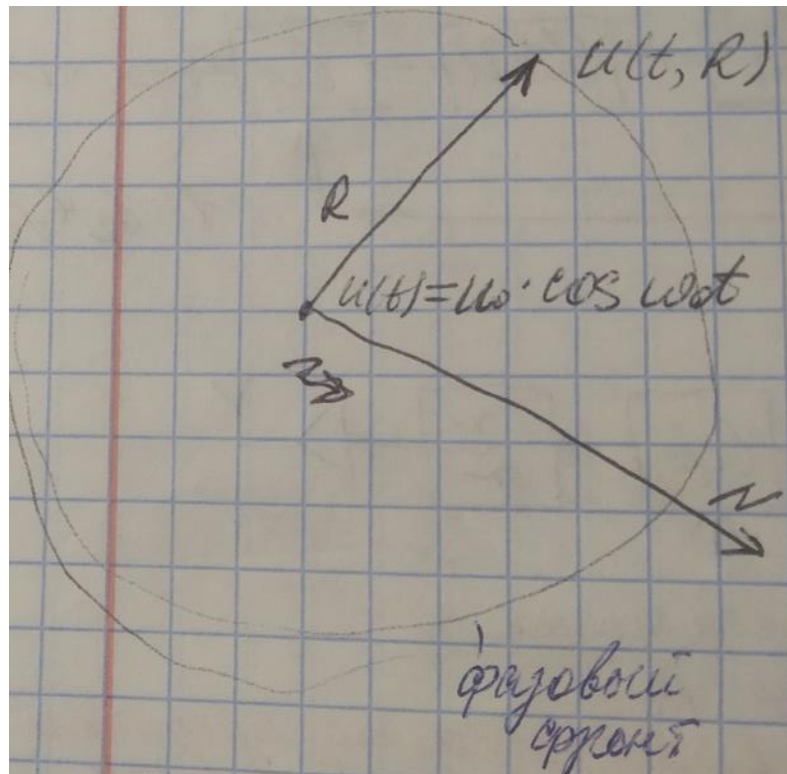 u(t, R)
R
u(t)=u₀·cos ω₀t
фазовый
фронт